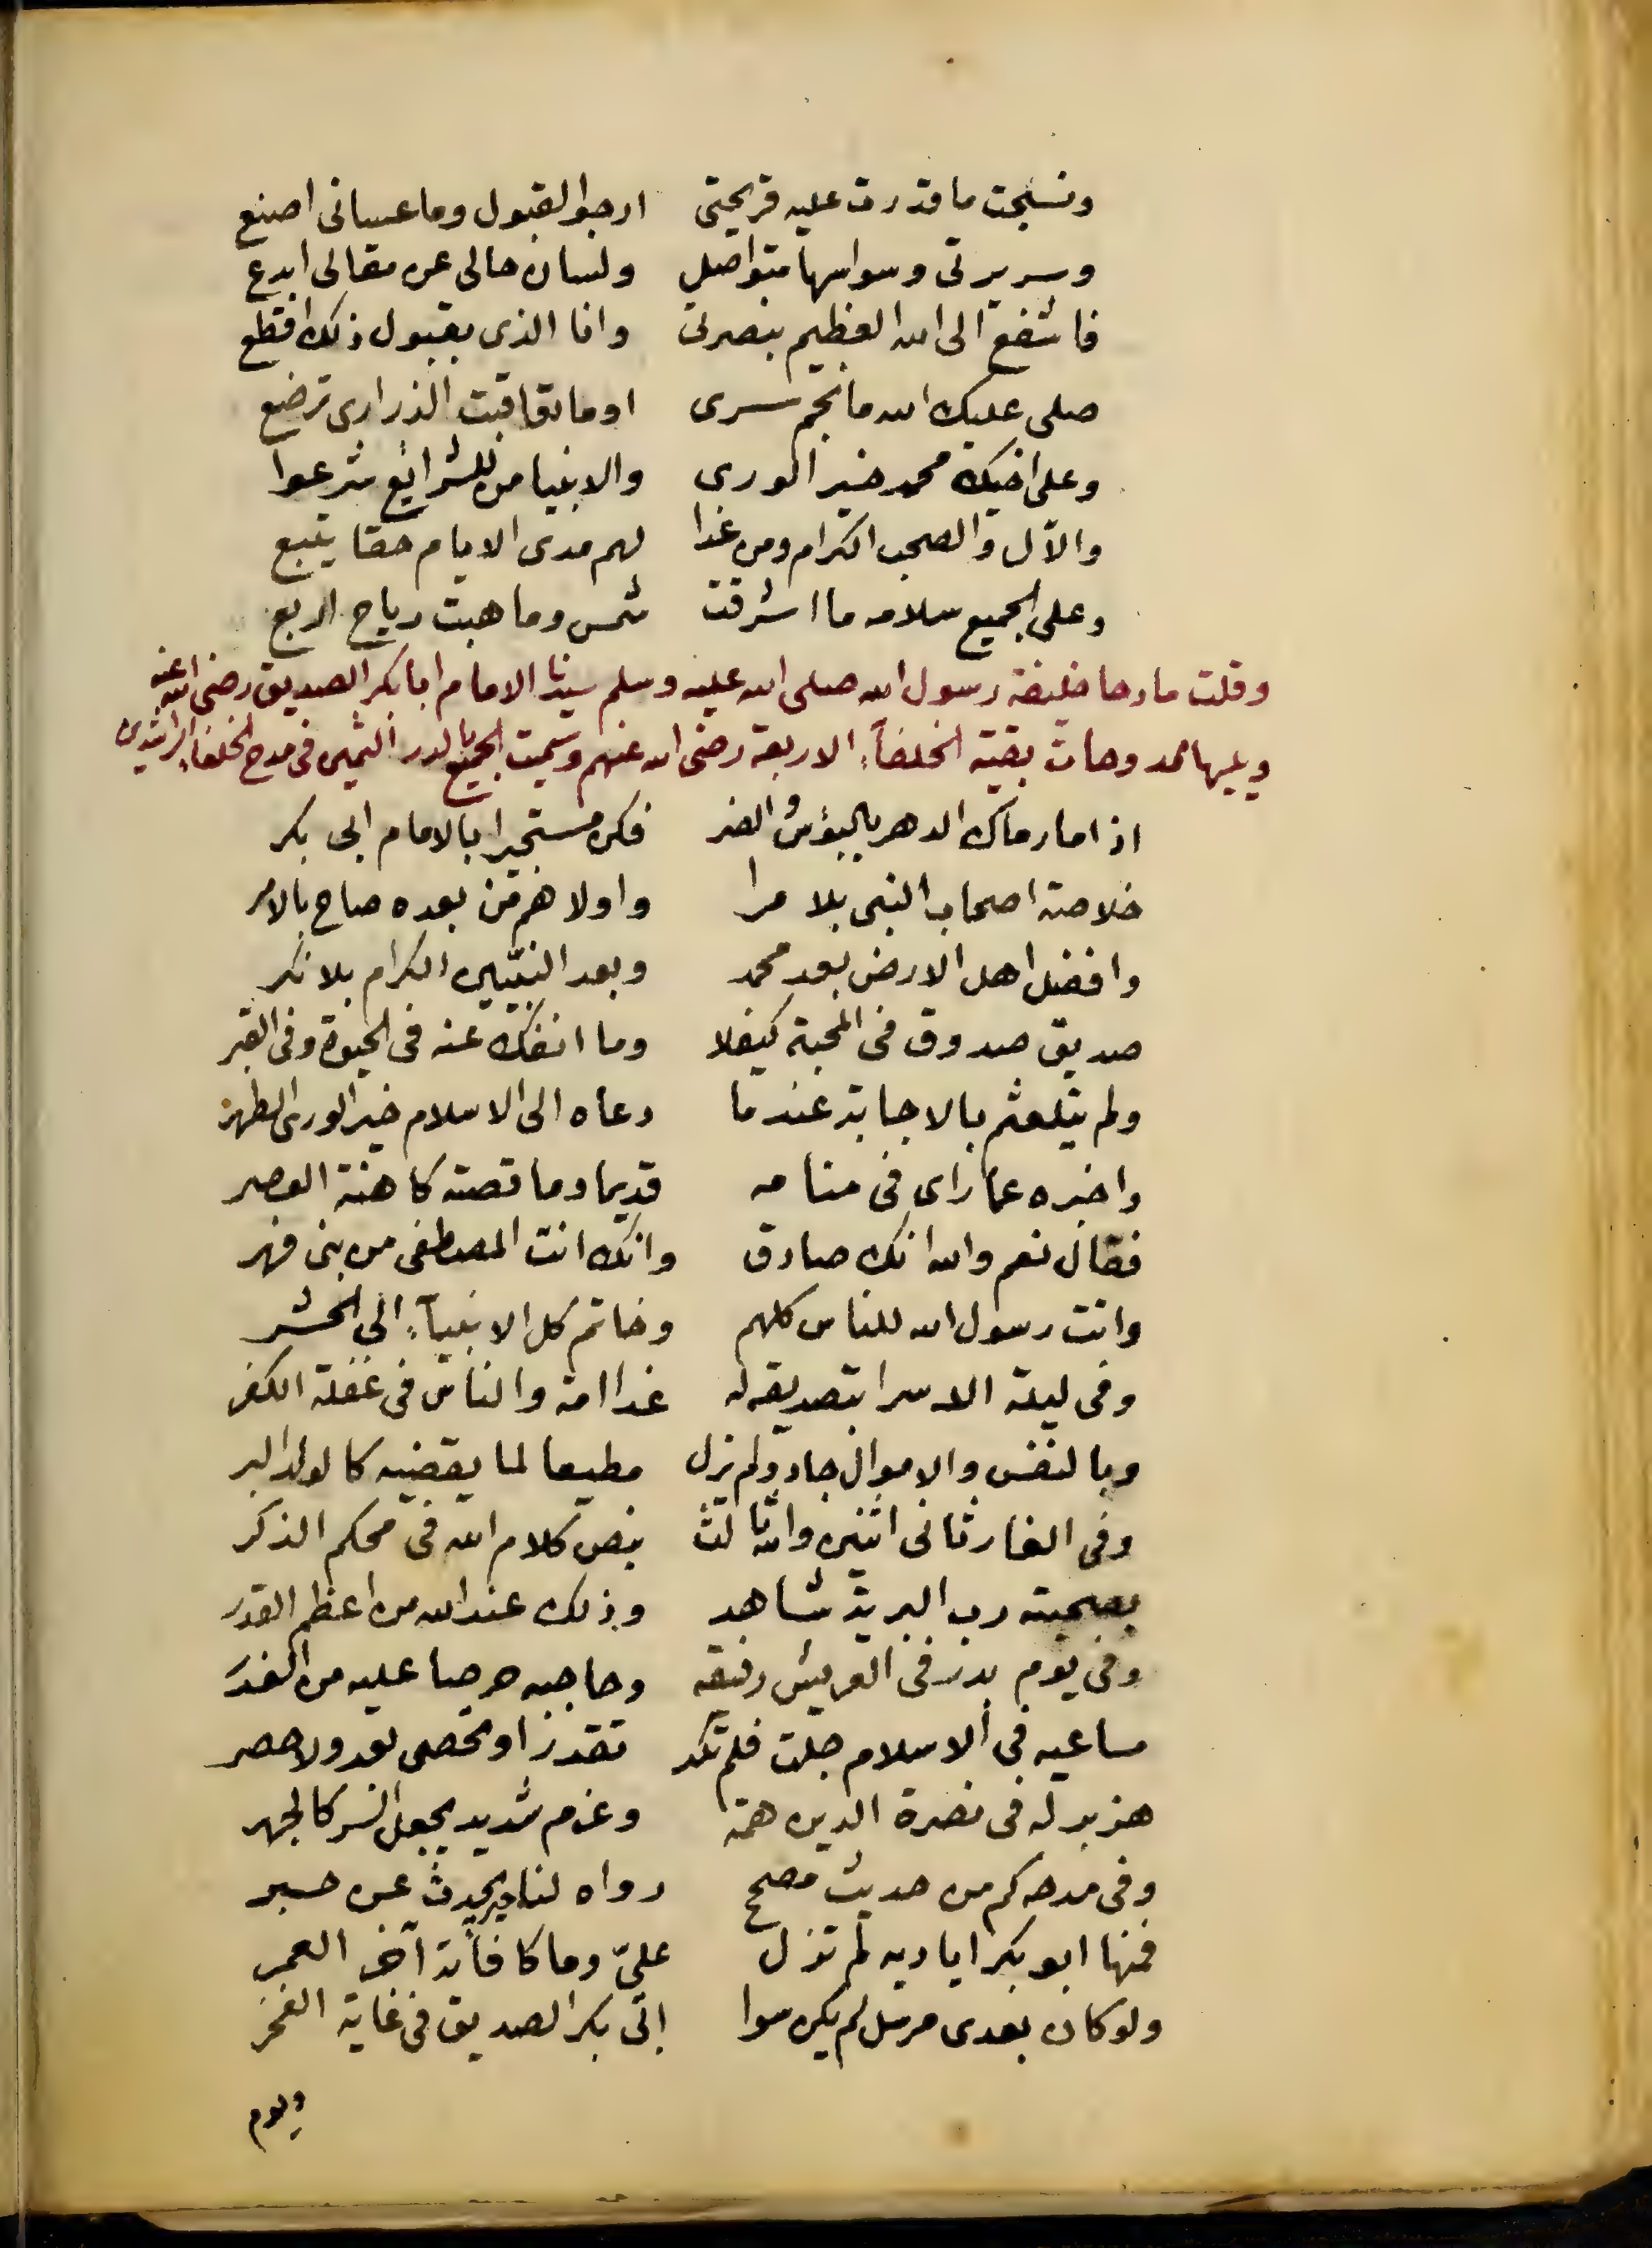 ونسجت ما قدرت عليه قريحتى ارجوا القبول وما عسانى اصنع
وسريرتى وسواسها متواصل ولسان حالى عن مقالى ابدع
فاشفع الى الله العظيم بنصرتى وانا الذى بقبول ذلك اقطع
صلى عليك الله ما نجم سرى او ما تعاقبت الذرارى ترضع
وعلى اخيك محمد خير الورى والانبيا من للشرائع شرعوا
والآل والصحب الكرام ومن غدا لهم مدى الايام حقا يتبع
وعلى الجميع سلامه ما اشرقت شمس وما هبت رياح اربع
وقلت مادحا خليفة رسول الله صلى الله عليه وسلم سيدنا الامام ابا بكر الصديق رضى الله عنه
ويليها ممدوحات بقية الخلفآء الاربعة رضى الله عنهم وسميت الجميع بالدر الثمين فى مدح الخلفاء الراشدين
اذا ما رماك الدهر بالبؤس والضر فكن مستجيرا بالامام ابى بكر
خلاصة اصحاب النبى بلا مرا واولاهم من بعده صاح بالامر
وافضل اهل الارض بعد محمد وبعد النبيين الكرام بلا نكر
صديق صدوق فى المحبة كيفلا وما انفك عنه فى الحيوة وفى القبر
ولم يتلعثم بالاجابة عندما دعاه الى الاسلام خير الورى الطهر
واخبره عما راى فى منامه قديما وما قصته كاهنة العصر
فقال نعم والله انك صادق وانك انت المصطفى من بنى فهر
وانت رسول الله للناس كلهم وخاتم كل الانبيآء الى الحشر
وفى ليلة الاسرا بتصديقه له غدا امة والناس فى غفلة الكفر
وبالنفس والاموال جاد ولم يزل مطيعا لما يقضيه كالولد البر
وفى الغار ثانى اثنين والله ثالث بنص كلام الله فى محكم الذكر
بصحبته رب البرية شاهد وذلك عند الله من اعظم القدر
وفى يوم بدر فى العريش رفيقه وحاجبه حرصا عليه من الغدر
مساعيه فى الاسلام جلت فلم تكد تقدر او تحصى بعد ولا حصر
هزبر له فى نصرة الدين همة وعزم شديد يجعل السر كالجهر
وفى مدحه كم من حديث مصحح رواه لنا حبر يحدث عن حبر
فمنها ابو بكر اياديه لم تزل علىّ وما كافأته آخر العمر
ولو كان بعدى مرسل لم يكن سوا ابى بكر الصديق فى غاية الفخر
ويوم